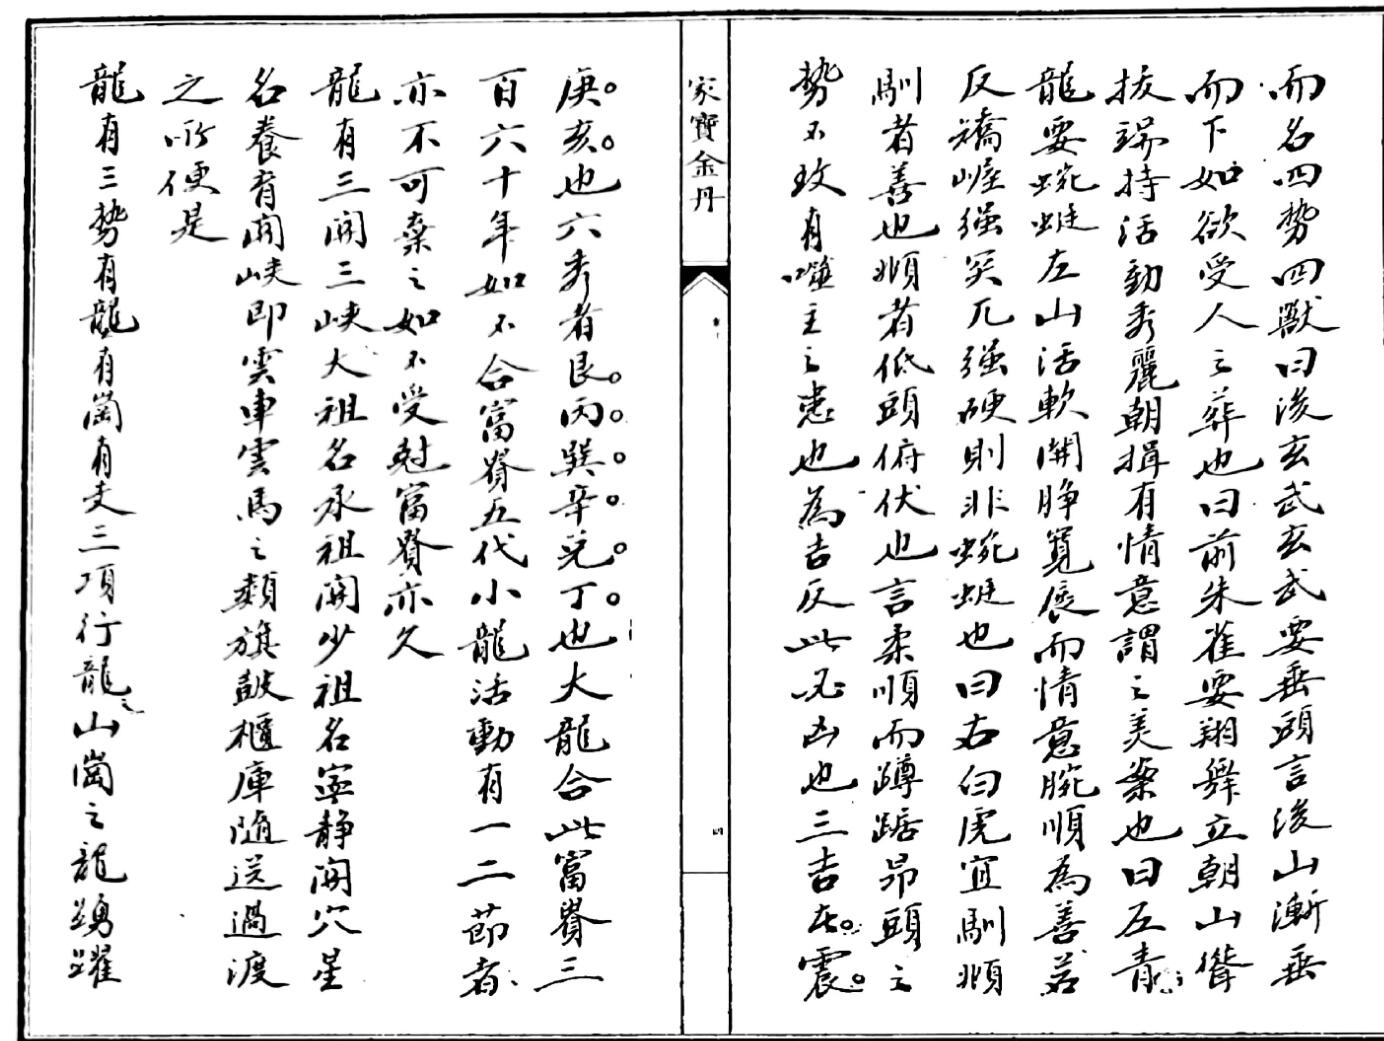 而名四势四獸曰後玄武玄武要垂頭言後山漸垂
而下如欲受人之葬也曰前朱雀要翔舞立朝山聳
拔端持活動秀麗朝揖有情意謂之美案也曰左青
龍要蜿蜒左山活軟開睜寬展而情意腕順為善若
反矯崛强突兀强硬則非蜿蜒也曰右白虎宜馴頫
馴者善也頫者低頭俯伏也言柔順而蹲踞昂頭之
势不攻有噬主之患也為吉反此必凶也三吉在震
家寶金丹
庚亥也六秀者艮丙巽辛兌丁也大龍合此富貴三
百六十年如不合富貴五代小龍活動有一二節者
亦不可棄之如不受尅富貴亦久
龍有三開三峽大祖名承祖開少祖名寧静開穴星
名養育開峽即雲車雲馬之類旗皷櫃庫隨送過渡
之所便是
龍有三势有龍有崗有支三項行龍之山崗之龍踴躍